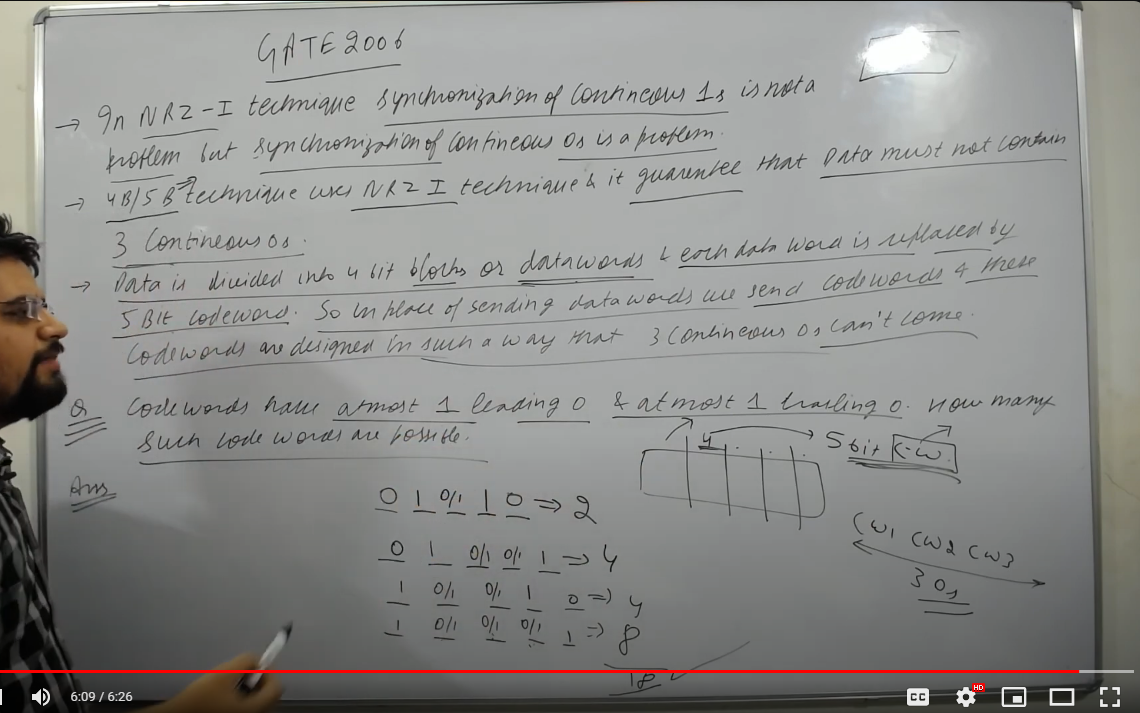 GATE 2006
→ In NRZ-I technique synchronization of contineous 1s is not a
problem but synchronization of contineous 0s is a problem.
→ 4B/5B technique uses NRZ I technique & it guarentee that Data must not contain
3 Contineous 0s.
→ Data is divided into 4 bit blocks or datawords & each data word is replaced by
5 Bit codeword. So in place of sending datawords we send codewords & these
Codewords are designed in such a way that 3 Contineous 0s can't come.
Q Codewords have atmost 1 leading 0 & atmost 1 trailing 0. How many
such code words are possible.
4 → 5 bit C.W.
Ans
0 1 0/1 1 0 ⇒ 2
0 1 0/1 0/1 1 ⇒ 4
1 0/1 0/1 1 0 ⇒ 4
1 0/1 0/1 0/1 1 ⇒ 8
18
CW1 CW2 CW3
3 0s
6:09 / 6:26
CC
HD